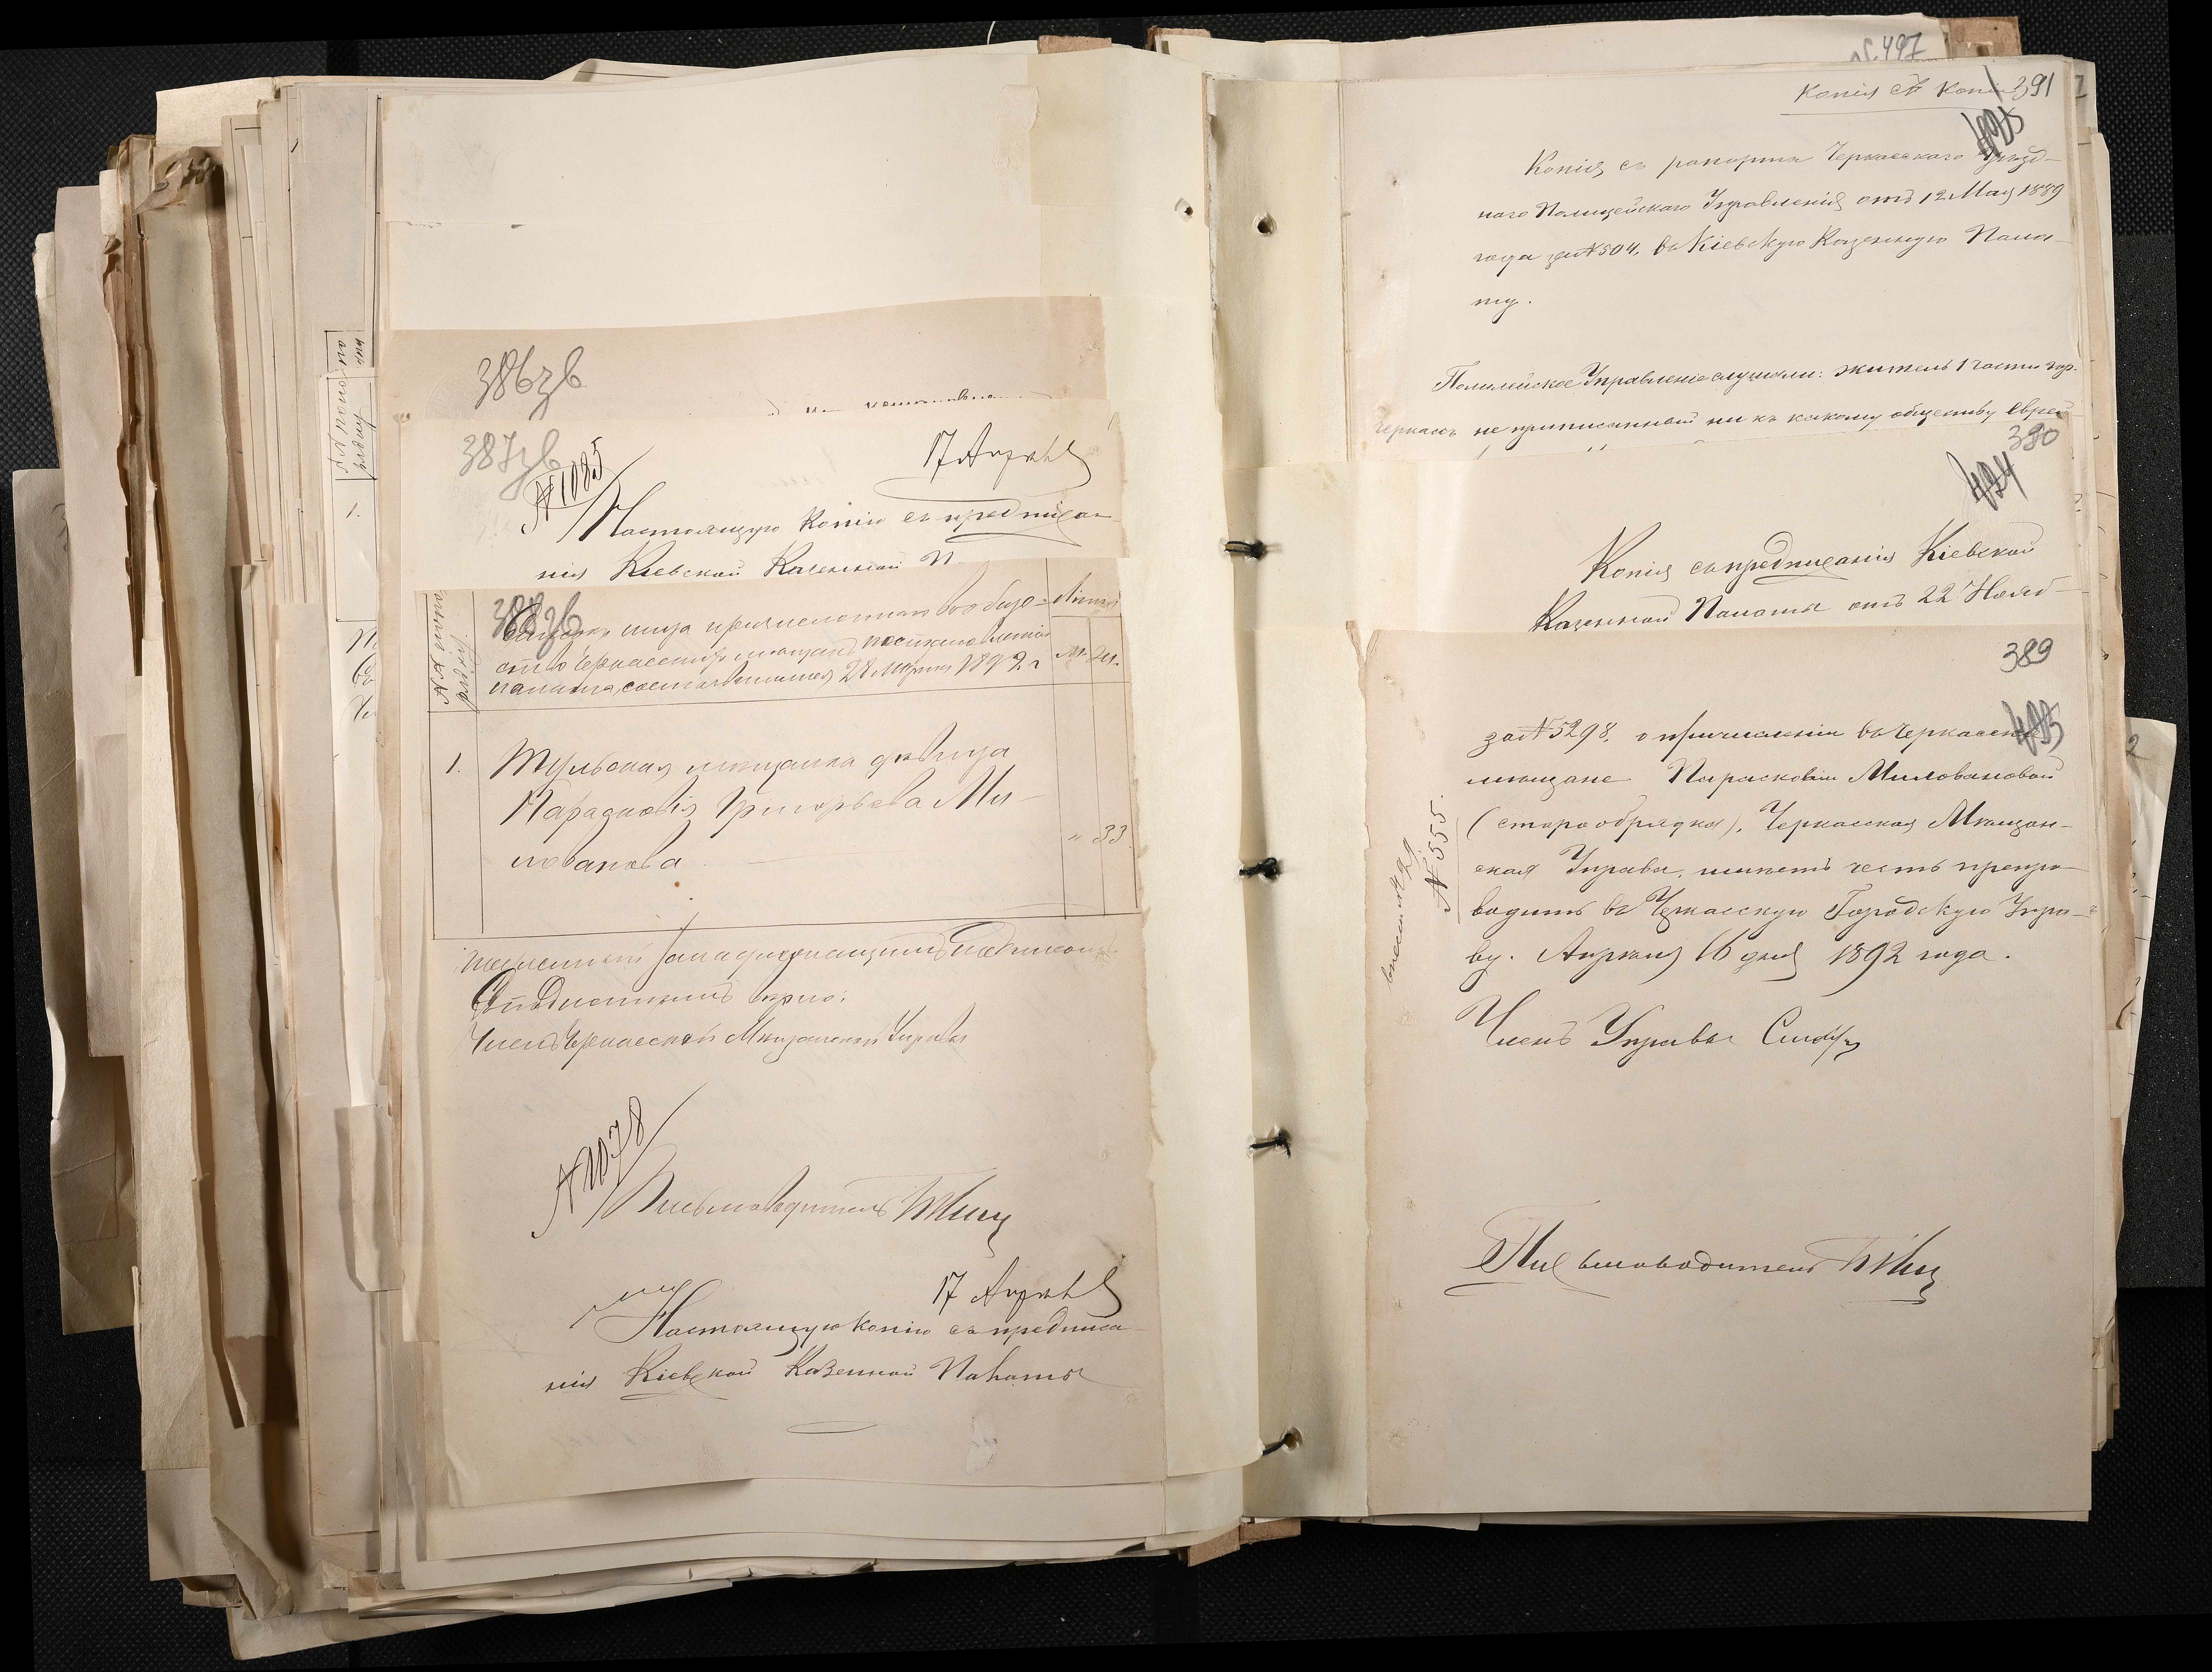 386зв
387зв
№ 1085
17 Апрѣля
Настоящую Копію съ предписа-
нія Кіевской Казенной П
№№ по по-
рядку.
388зв
Списокъ лица причисленнаго въ общество Черкасскихъ мѣщанъ
палаты, состоявшимся 28 Марта 1892 г.
Лѣта
м. ж.
1.
Тульская мѣщанка дѣвица
Парасковія Григорьева Ми-
лованова
" 33.
подписомъ
вѣрно:
Членъ Черкасской Мѣщанской Управы
№ 1078
Письмоводитель
17 Апрѣля
Настоящую копію съ предписа-
нія Кіевской Казенной Палаты
№ 497
Копія съ копіи 391
425
Копія съ рапорта Черкасскаго Уѣзд-
наго Полицейскаго Управленія отъ 12 Мая 1889
года за № 504, въ Кіевскую Казенную Пала-
ту.
Полицейское Управленіе слушали: житель 1 части гор.
Черкассъ не приписанный ни къ какому обществу Еврей
390
424
Копія съ предписанія Кіевской
Казенной Палаты отъ 22 Нояб-
389
за № 5298, о причисленіи въ Черкасскіе
мѣщане Парасковіи Миловановой
(старообрядка), Черкасская Мѣщан-
ская Управа, имѣетъ честь препро-
водить въ Черкасскую Городскую Упра-
ву. Апрѣля 16 дня 1892 года.
№ 555.
Членъ Управы
Письмоводитель